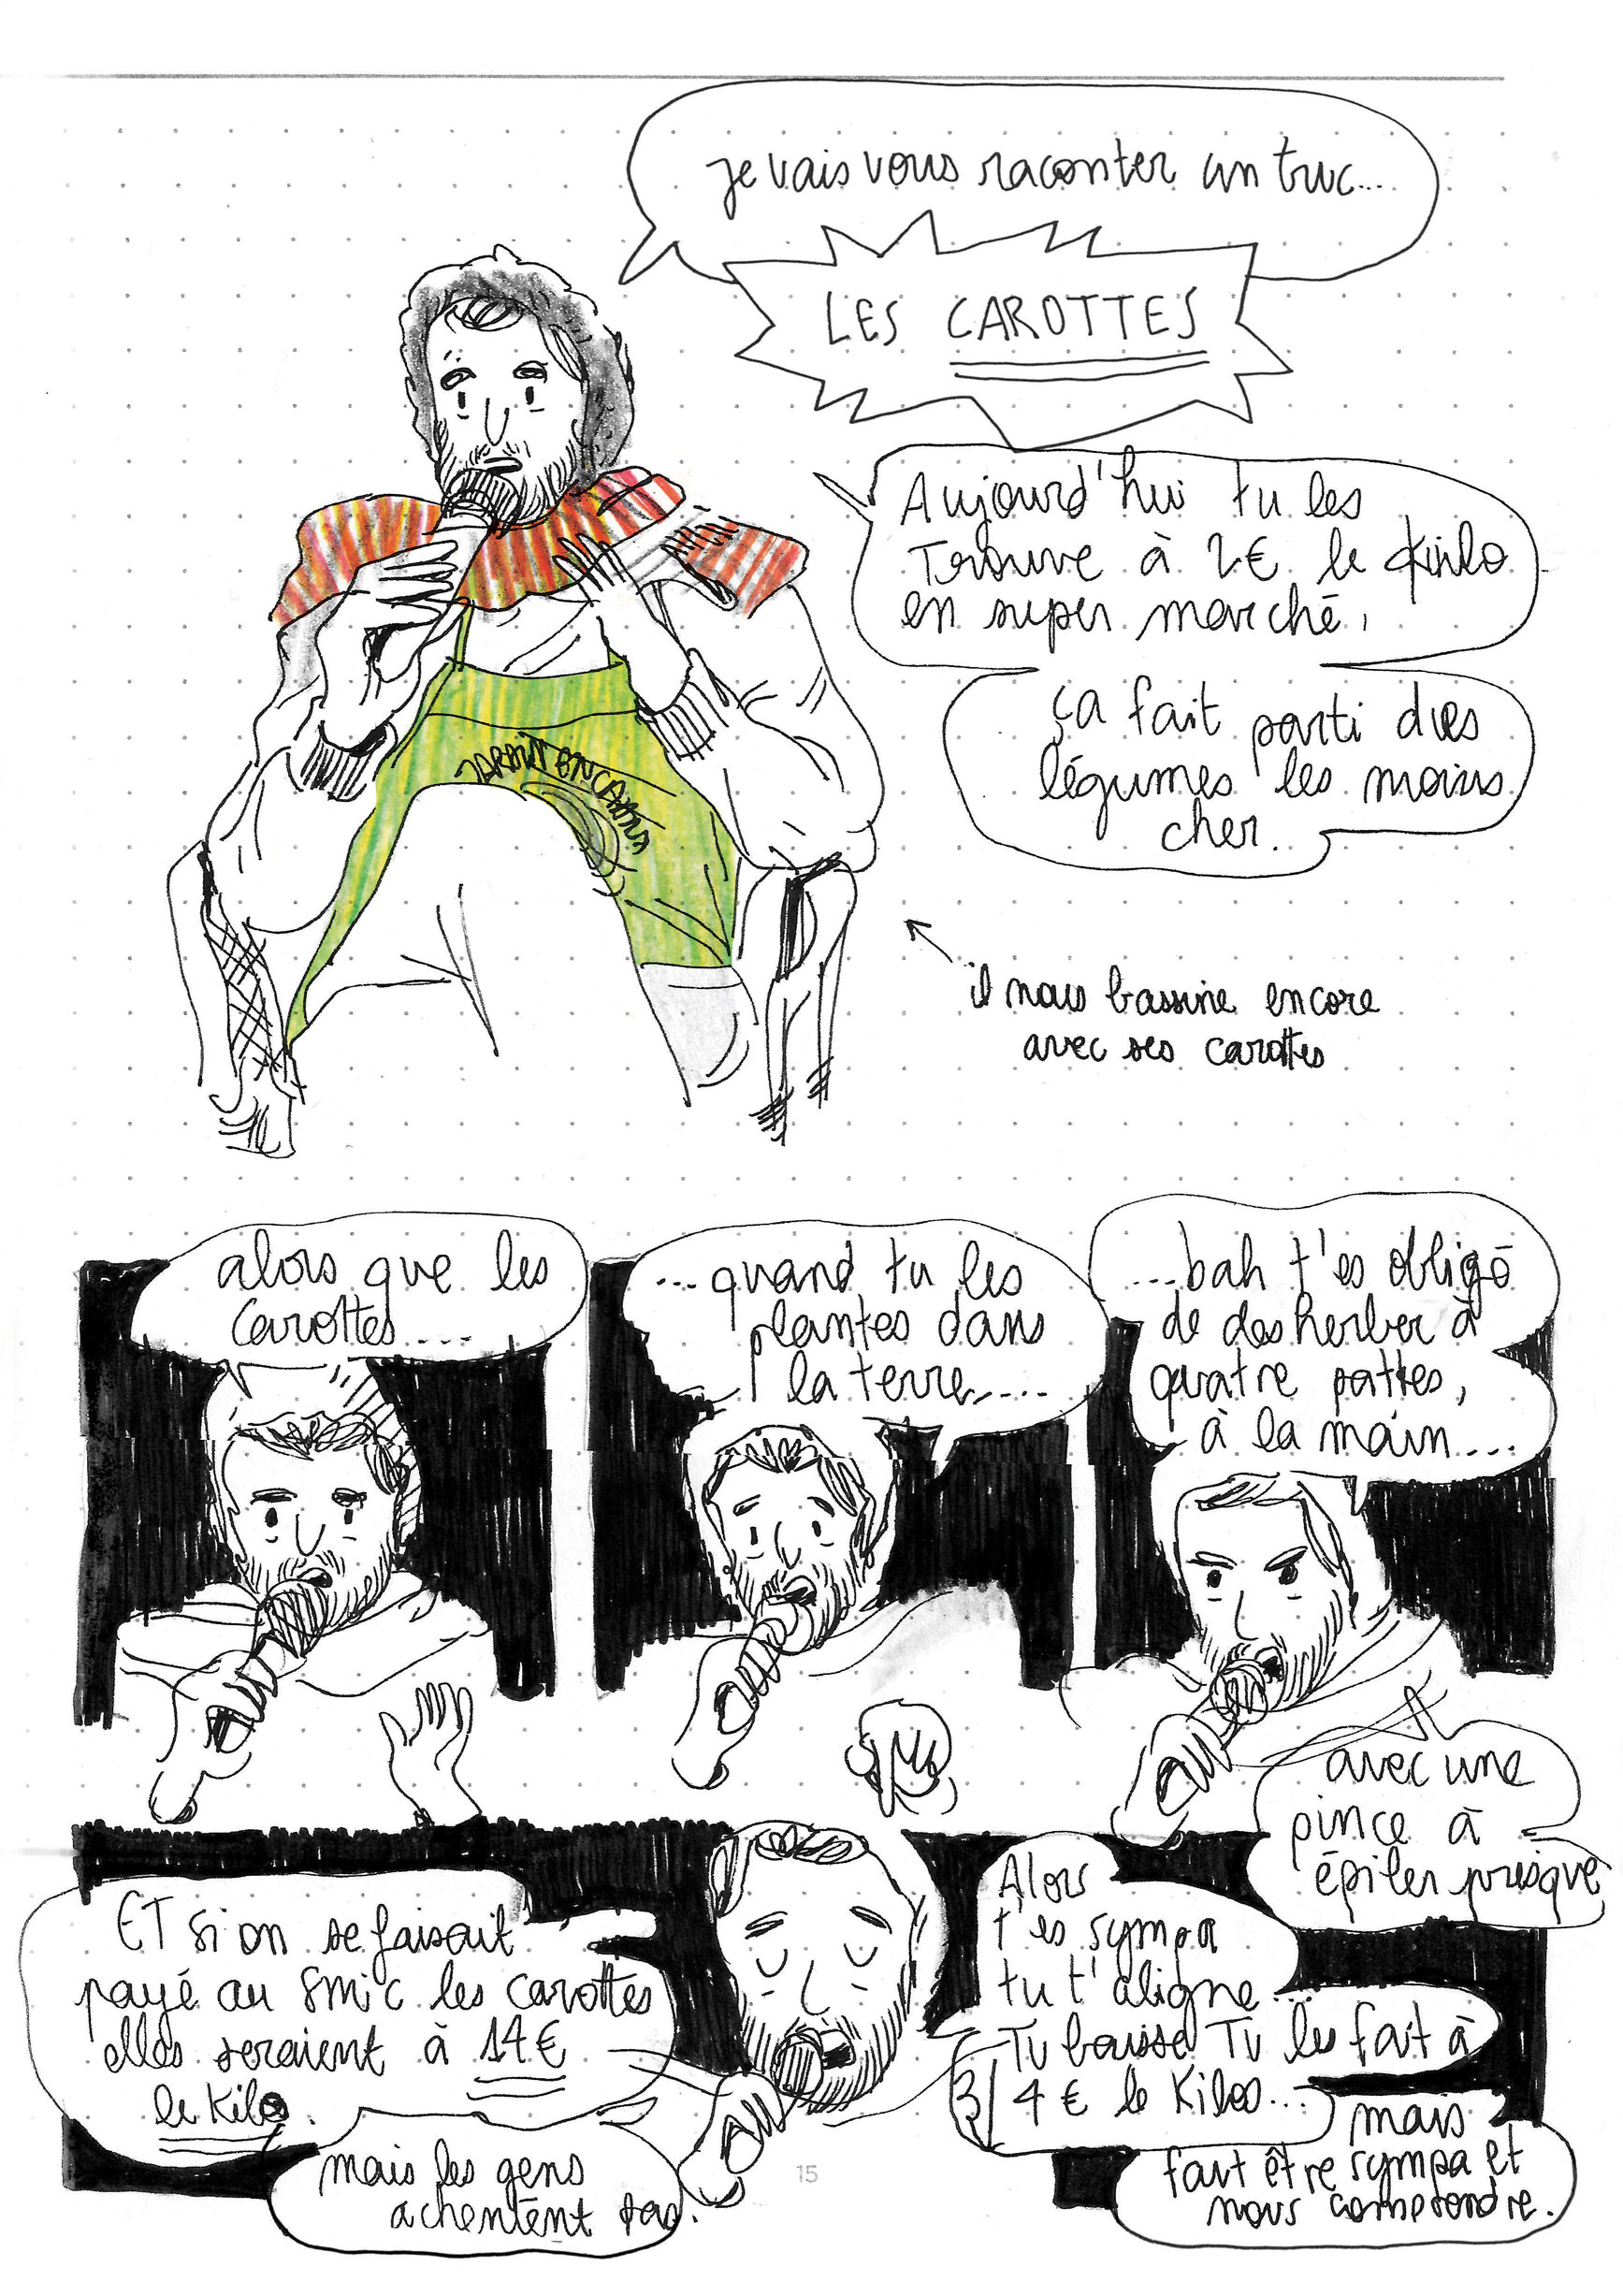 je vais vous raconter un truc...
LES CAROTTES
Aujourd'hui tu les
trouve à 2€ le kilo
en super marché,
ça fait parti des
légumes les moins
cher.
il nous bassine encore
avec ses carottes
alors que les
carottes....
...quand tu les
plantes dans
la terre....
...bah t'es obligé
de desherber à
quatre pattes,
à la main...
avec une
pince à
épiler presque
ET si on se faisait
payé au smic les carottes
elles seraient à 14€
le kilo.
mais les gens
achentent pas.
Alors
t'es sympa
tu t'aligne...
Tu baisse Tu les fait à
3/4€ le kilos...
mais
faut être sympa et
nous comprendre.
15